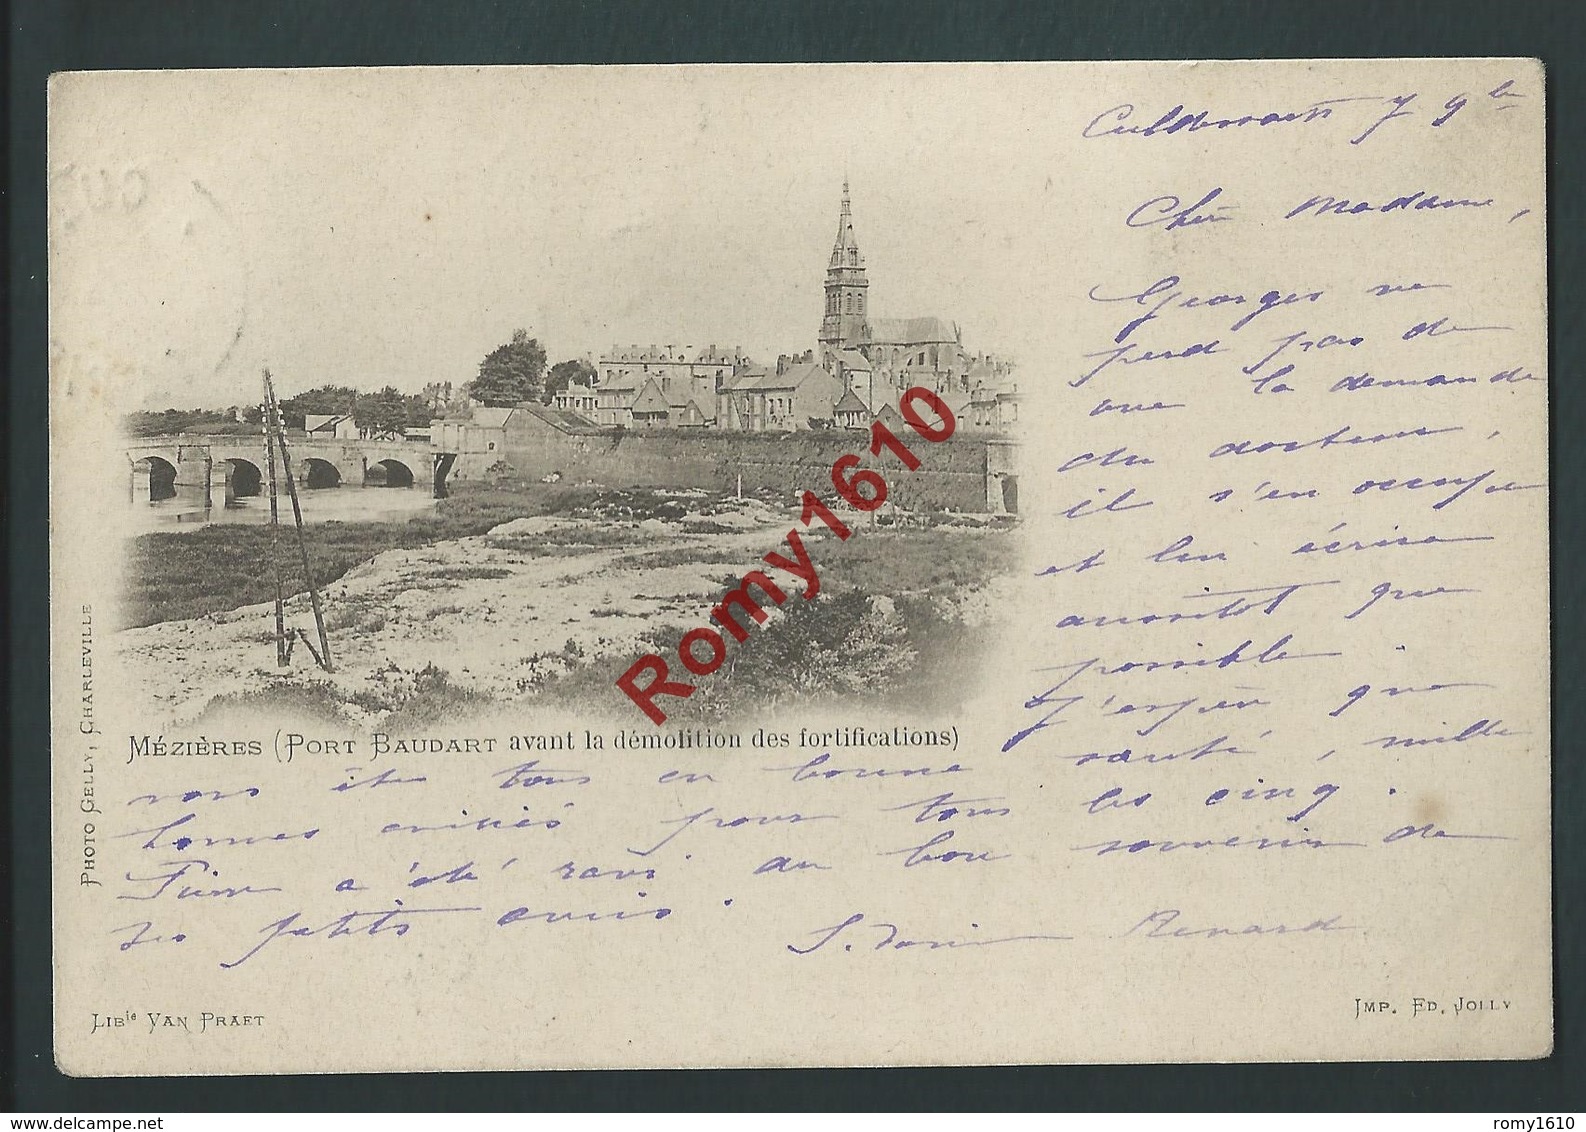 7 9bre
Chère Madame,
Georges ne
perd pas de
vue la demande
du docteur,
il s'en occupe
et lui écrira
aussitôt que
possible.
J'espère que
vous êtes tous en bonne santé, mille
bonnes amitiés pour tous les cinq.
Pierre a été ravi du bon souvenir de
ses petits amis.
Renard
MÉZIÈRES (PORT BAUDART avant la démolition des fortifications)
PHOTO GELLY, CHARLEVILLE
LIBie VAN PRAET
IMP. ED. JOLLY
Romy1610
delcampe.net
romy1610